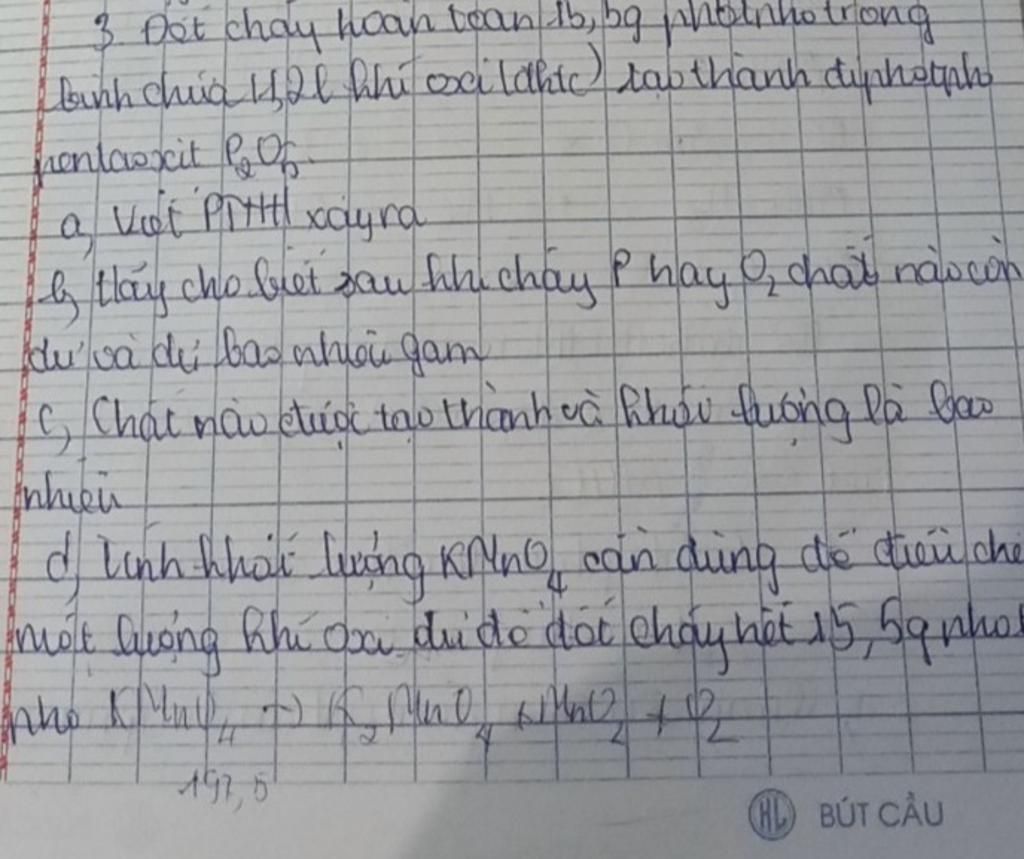 3 Đốt cháy hoàn toàn 15,5g phôtpho trong
bình chứa 11,2l khí oxi (đktc) tạo thành điphotpho
pentaoxit P₂O₅.
a, Viết PTHH xảy ra
b, Hãy cho biết sau khi cháy P hay O₂ chất nào còn
dư và dư bao nhiêu gam
c, Chất nào được tạo thành và khối lượng là bao
nhiêu
d, Tính khối lượng KMnO₄ cần dùng để điều chế
một lượng khí oxi đủ để đốt cháy hết 15,5g phot
pho KMnO₄ → K₂MnO₄ + MnO₂ + O₂
197,5
HL BÚT CẦU